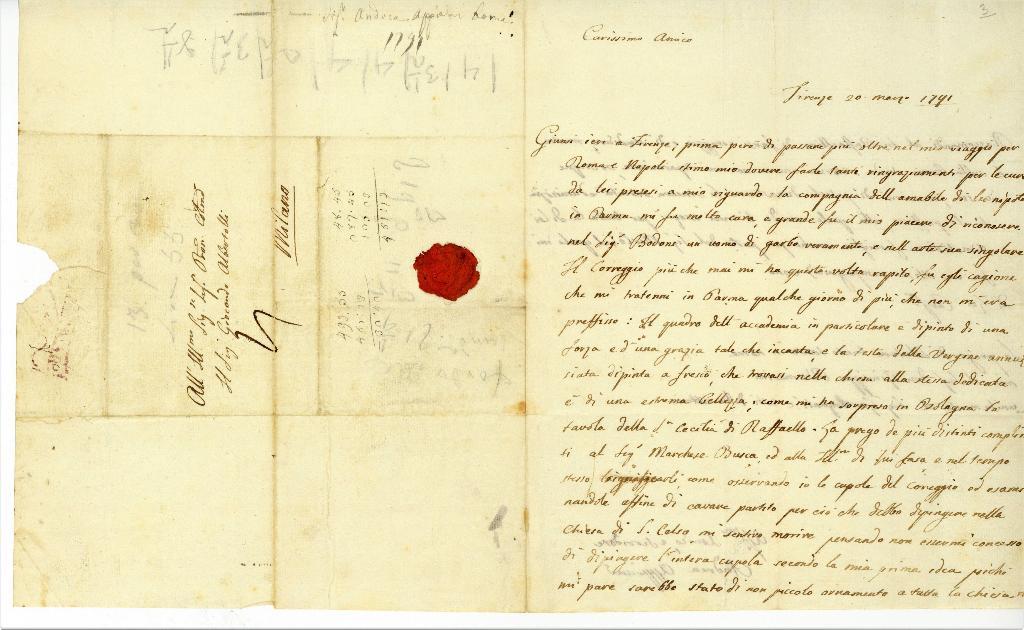 Sig.r Andrea Appiani
1791
All' Ill.mo Sig.r Sig.r
Il Sig.r Giocondo Albertolli
Milano
Carissimo Amico
Firenze 20 marzo 1791
Giunsi ieri a Firenze; prima però di passare più oltre nel mio viaggio per
Roma e Napoli stimo mio dovere farle tanti ringraziamenti per le cure
da lei presesi a mio riguardo la compagnia dell amabile di lei nipote
in Parma mi fu molto cara e grande fu il mio piacere di riconoscere
nel Sig.r Bodoni un uomo di garbo veramente, e nell arte sua singolare
Il Correggio più che mai mi ha questa volta rapito, fu egli cagione
che mi tratenni in Parma qualche giorno di più, che non m'era
preffisso: Il quadro dell'accademia in particolare è dipinto di una
forza e d'una grazia tale che incanta, e la testa della Vergine annun
siata dipinta a fresco, che trovasi nella chiesa alla stessa dedicata
è di una estrema bellezza, come mi ha sorpreso in Bologna la
tavola della S.a Cecilia di Raffaello. La prego de più distinti compli
ti al Sig.r Marchese Busca, ed alla di lui Casa e nel tempo
stesso significarli come osservando io le cupole del Coreggio ed esami
nandole affine di cavare partito per ciò che debbo dipingere nella
chiesa di S. Celso mi sentivo morire pensando non essermi concesso
di dipingere l'intera cupola secondo la mia prima idea poichè
mi pare sarebbe stato di non piccolo ornamento a tutta la chiesa